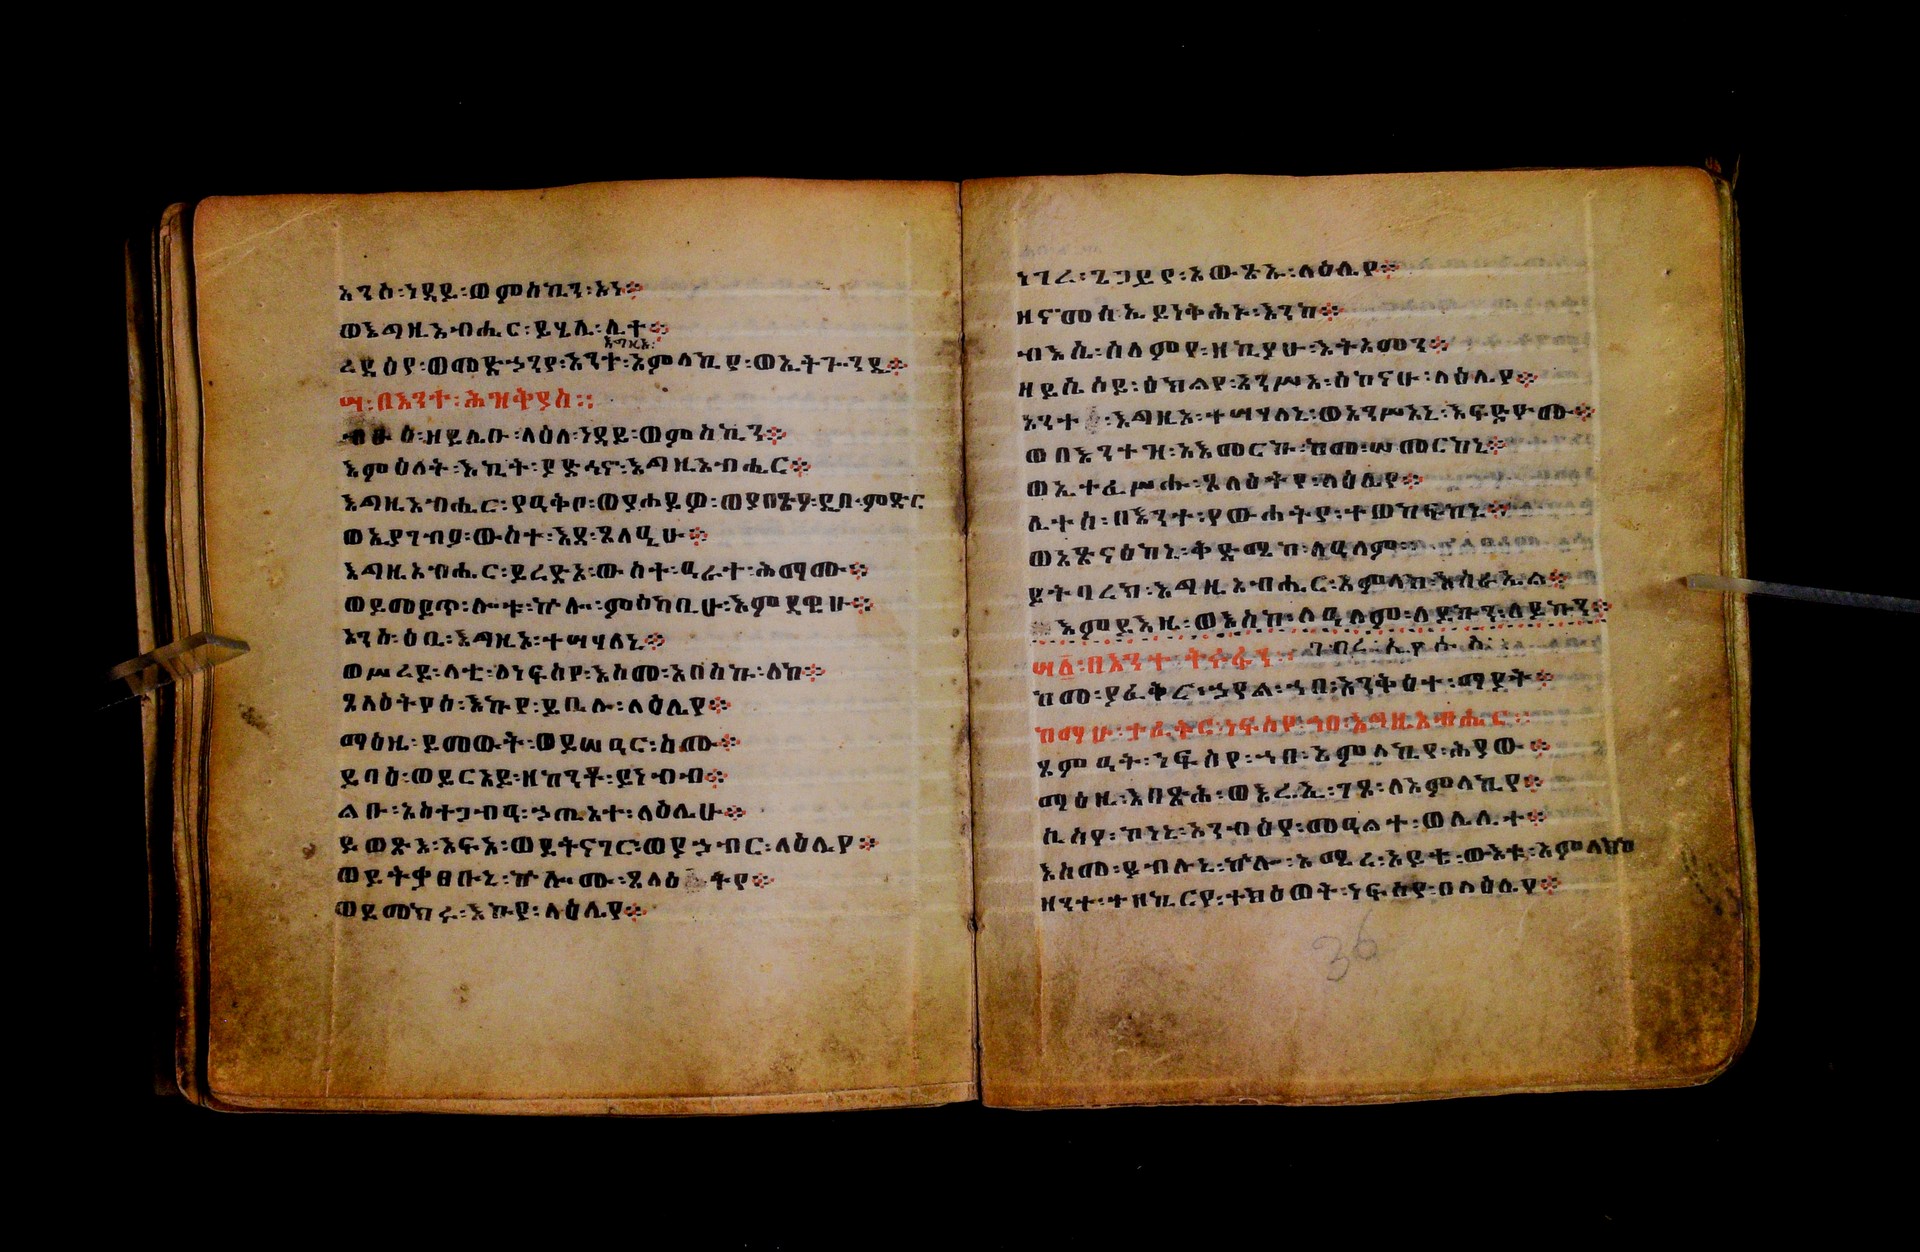 አንሰ፡ነዳይ፡ወምስኪን፡አነ፨
ወእግዚአብሔር፡ይሄሊ፡ሊተ፨
እግዚኦ፡
ረዳዕየ፡ወመድኃንየ፡አንተ፡አምላኪየ፡ወኢትጐንዲ፨
፵፡በእንተ፡ሕዝቅያስ፡፡
ብፁዕ፡ዘይሌቡ፡ላዕለ፡ነዳይ፡ወምስኪን፨
እምዕለት፡እኪት፡ያድኅኖ፡እግዚአብሔር፨
እግዚአብሔር፡የዓቅቦ፡ወያሐይዎ፡ወያበፅዖ፡ዲበ፡ምድር
ወኢያገብኦ፡ውስተ፡እደ፡ጸላዒሁ፨
እግዚአብሔር፡ይረድኦ፡ውስተ፡ዓራተ፡ሕማሙ፨
ወይመይጥ፡ሎቱ፡ኵሎ፡ምስካቢሁ፡እምደዌሁ፨
አንሰ፡ዕቤ፡እግዚኦ፡ተሣሃለኒ፨
ወሥረይ፡ላቲ፡ለነፍስየ፡እስመ፡አበስኩ፡ለከ፨
ጸላዕትየሰ፡እኩየ፡ይቤሉ፡ላዕሌየ፨
ማዕዜ፡ይመውት፡ወይሠዓር፡ስሙ፨
ይባዕ፡ወይርአይ፡ዘከንቶ፡ይነብብ፨
ልቡ፡አስተጋብዓ፡ኃጢአተ፡ላዕሌሁ፨
ይወጽእ፡አፍአ፡ወይትናገር፡ወየኃብር፡ላዕሌየ፨
ወይትቃፀቡኒ፡ኵሎሙ፡ጸላዕትየ፨
ወይመክሩ፡እኩየ፡ላዕሌየ፨
ነገረ፡ጌጋይየ፡አውፅኡ፡ላዕሌየ፨
ዘኖመሰ፡ኢይነቅሕኑ፡እንከ፨
ብእሴ፡ሰላምየ፡ዘኪያሁ፡እትአመን፨
ዘይሴሰይ፡ዕክልየ፡አንሥአ፡ሰኮናሁ፡ላዕሌየ፨
አንተ፡እግዚኦ፡ተሣሃለኒ፡ወአንሥአኒ፡እፍድዮሙ፨
ወበእንተዝ፡አእመርኩ፡ከመ፡ሠመርከኒ፨
ወኢተፈሥሑ፡ጸላዕትየ፡ላዕሌየ፨
ሊተሰ፡በእንተ፡የውሐትየ፡ተወከፍከኒ፨
ወአጽናዕከኒ፡ቅድሜከ፡ለዓለም፨
ይትባረክ፡እግዚአብሔር፡አምላከ፡እስራኤል፨
እምይእዜ፡ወእስከ፡ለዓለም፡ለይኩን፡ለይኩን፨
፵፩፡በእንተ፡ትሩፋን፡
ከመ፡ያፈቅር፡ኃየል፡ኀበ፡አንቅዕተ፡ማያት፨
ከማሁ፡ተፈትር፡ነፍስየ፡ኀበ፡እግዚአብሔር፨
ጸምዓት፡ነፍስየ፡ኀበ፡አምላኪየ፡ሕያው፨
ማዕዜ፡እበጽሕ፡ወእሬኢ፡ገጸ፡ለአምላኪየ፨
ሲሳየ፡ከነኒ፡አንብዕየ፡መዓልተ፡ወሌሊተ፨
እስመ፡ይብሉኒ፡ኵሎ፡አሚረ፡አይቴ፡ውእቱ፡አምላክከ
ዘንተ፡ተዘኪርየ፡ተክዕወት፡ነፍስየ፡በላዕሌየ፨
36